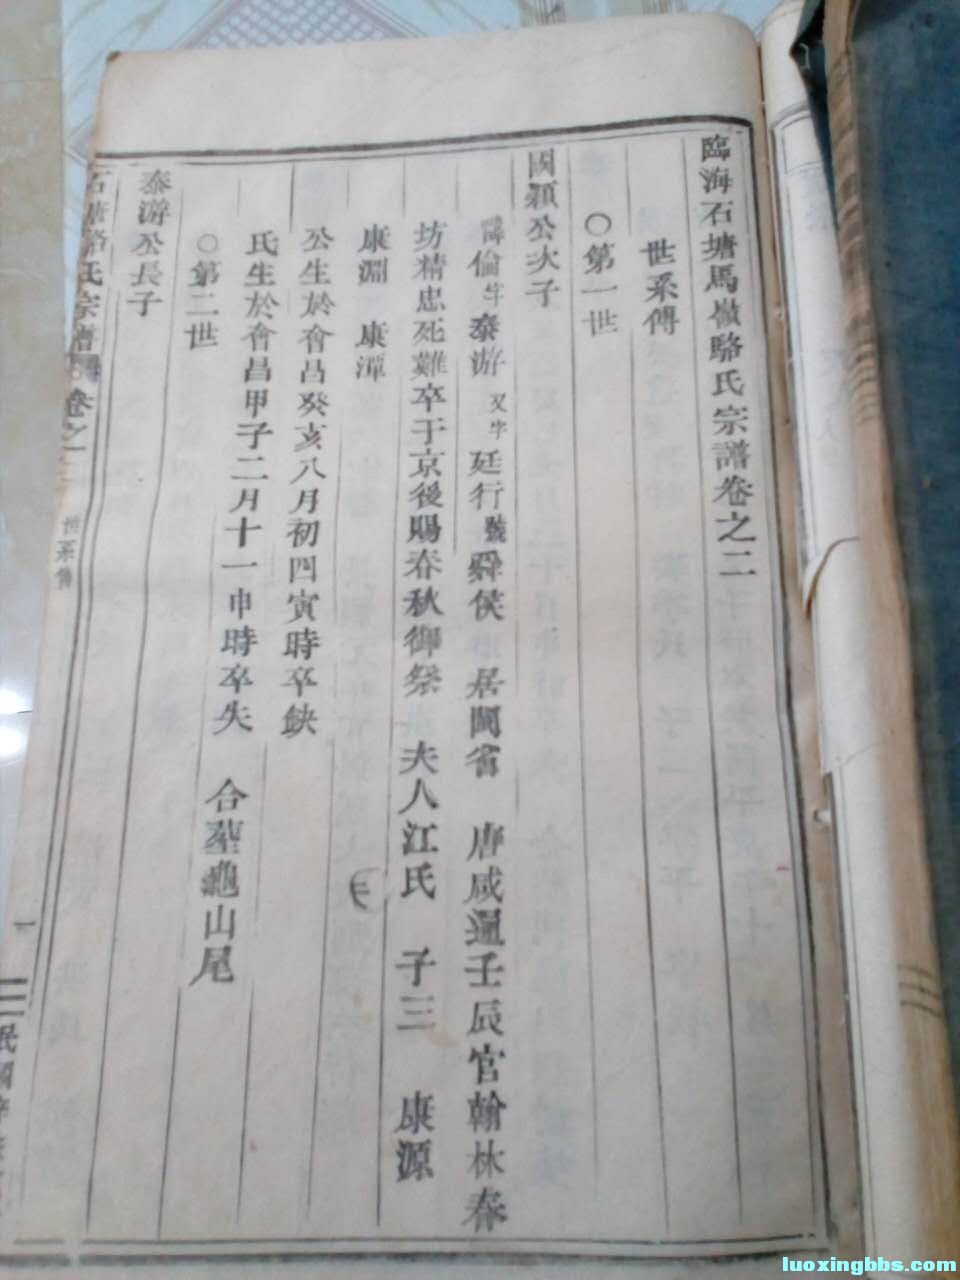 臨海石塘馬嶺駱氏宗譜卷之二
世系傳
○第一世
國潁公次子
諱倫字泰游 又字廷行號舜侯 居閩省 唐咸通壬辰官翰林春
坊精忠死難卒于京後賜春秋御祭 夫人江氏 子三 康源
康淵 康潭
公生於會昌癸亥八月初四寅時卒缺
氏生於會昌甲子二月十一申時卒失 合塟龜山尾
○第二世
泰游公長子
石塘駱氏宗譜 卷之二 世系傳 一 民國
luoxingbbs.com